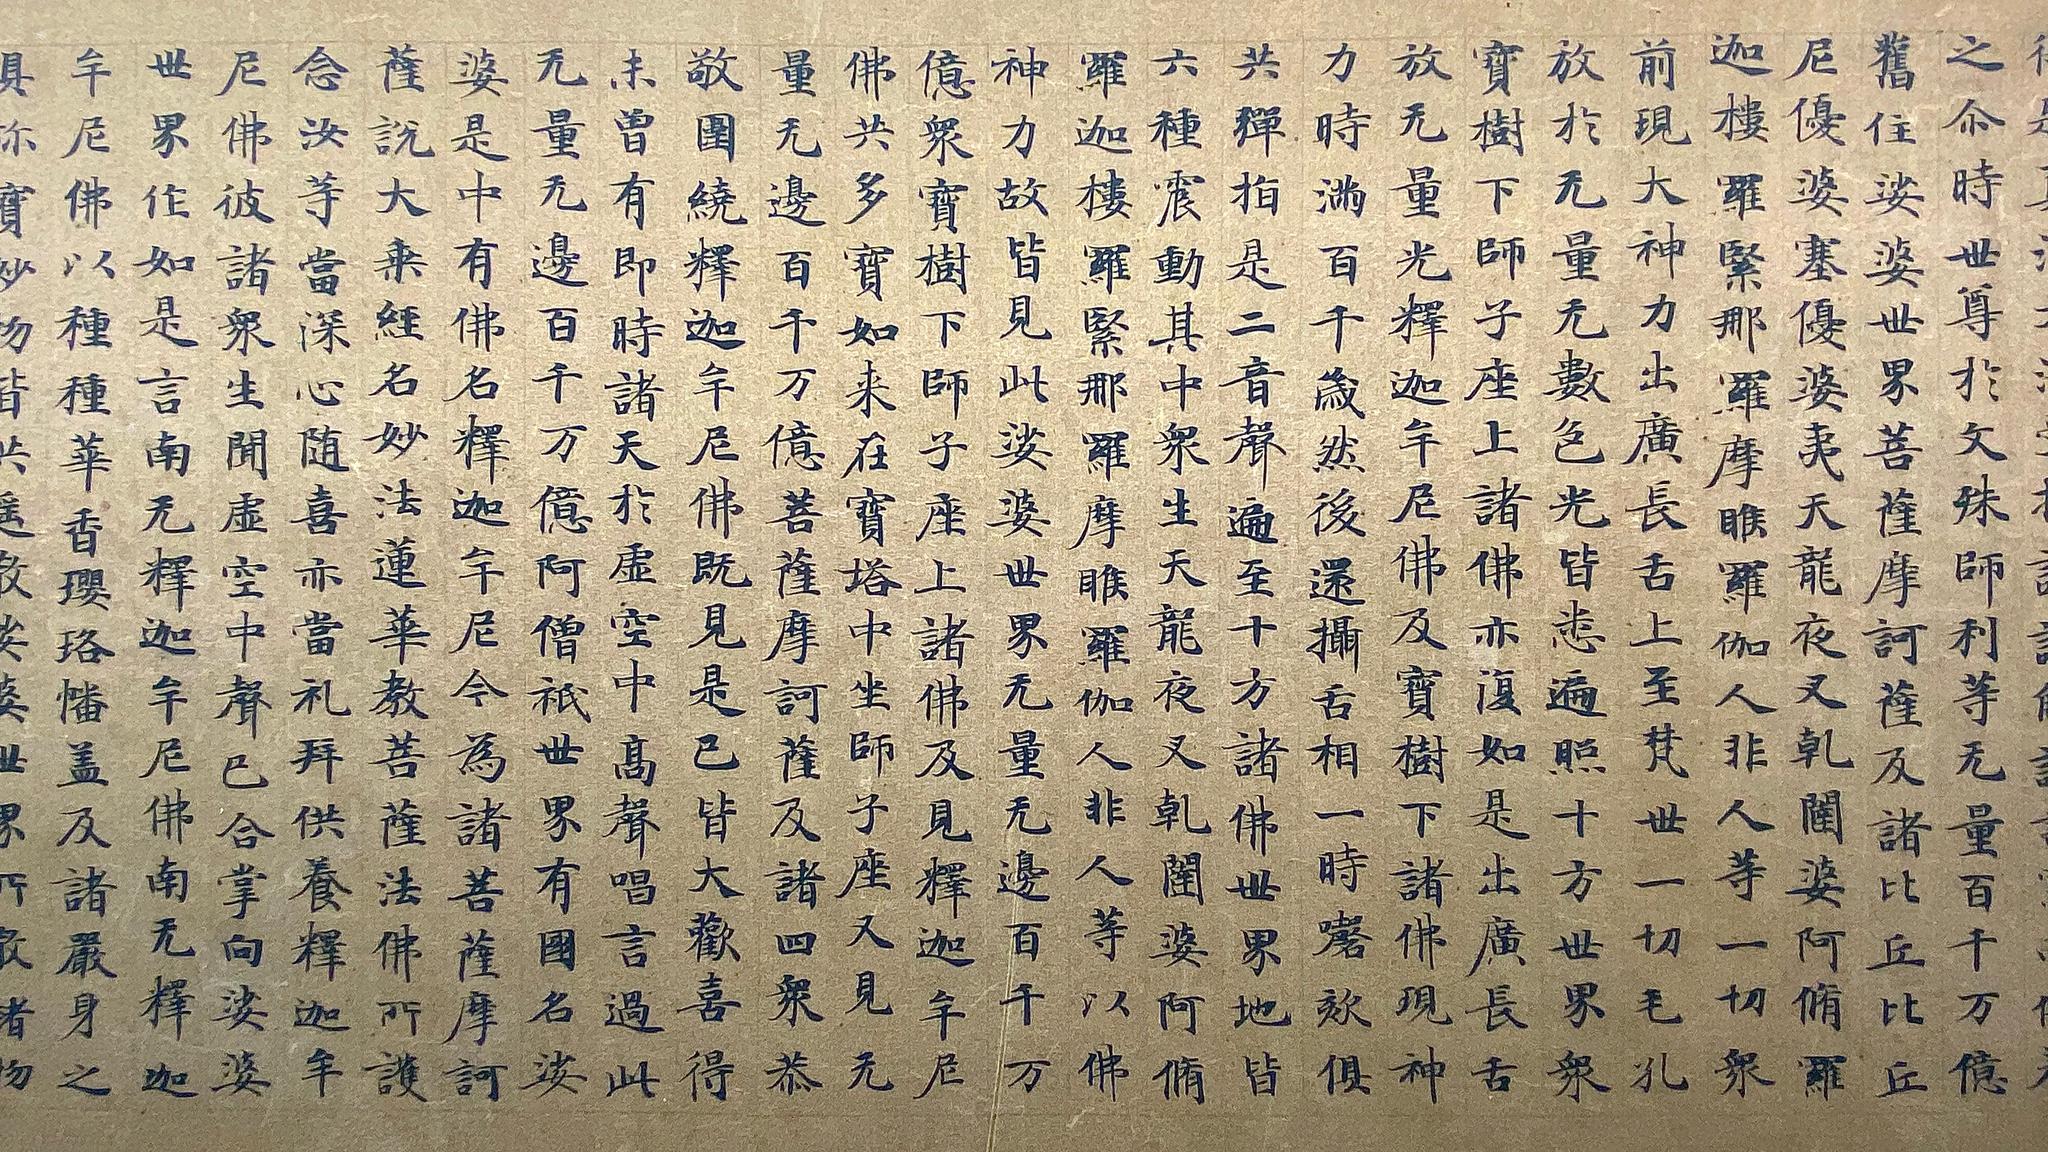 之尒時世尊於文殊師利等无量百千万億
舊住娑婆世界菩薩摩訶薩及諸比丘比丘
尼優婆塞優婆夷天龍夜叉乹闥婆阿脩羅
迦樓羅緊那羅摩睺羅伽人非人等一切衆
前現大神力出廣長舌上至梵世一切毛孔
放於无量无數色光皆悉遍照十方世界衆
寶樹下師子座上諸佛亦復如是出廣長舌
放无量光釋迦牟尼佛及寶樹下諸佛現神
力時滿百千歲然後還攝舌相一時謦欬俱
共彈拍是二音聲遍至十方諸佛世界地皆
六種震動其中衆生天龍夜叉乹闥婆阿脩
羅迦樓羅緊那羅摩睺羅伽人非人等以佛
神力故皆見此娑婆世界无量无邊百千万
億衆寶樹下師子座上諸佛及見釋迦牟尼
佛共多寶如来在寶塔中坐師子座又見无
量无邊百千万億菩薩摩訶薩及諸四衆恭
敬圍繞釋迦牟尼佛既見是已皆大歡喜得
未曾有即時諸天於虛空中髙聲唱言過此
无量无邊百千万億阿僧祇世界有國名娑
婆是中有佛名釋迦牟尼今為諸菩薩摩訶
薩說大乗經名妙法蓮華教菩薩法佛所護
念汝等當深心随喜亦當礼拜供養釋迦牟
尼佛彼諸衆生聞虛空中聲已合掌向娑婆
世界作如是言南无釋迦牟尼佛南无釋迦
牟尼佛以種種華香瓔珞幡盖及諸嚴身之